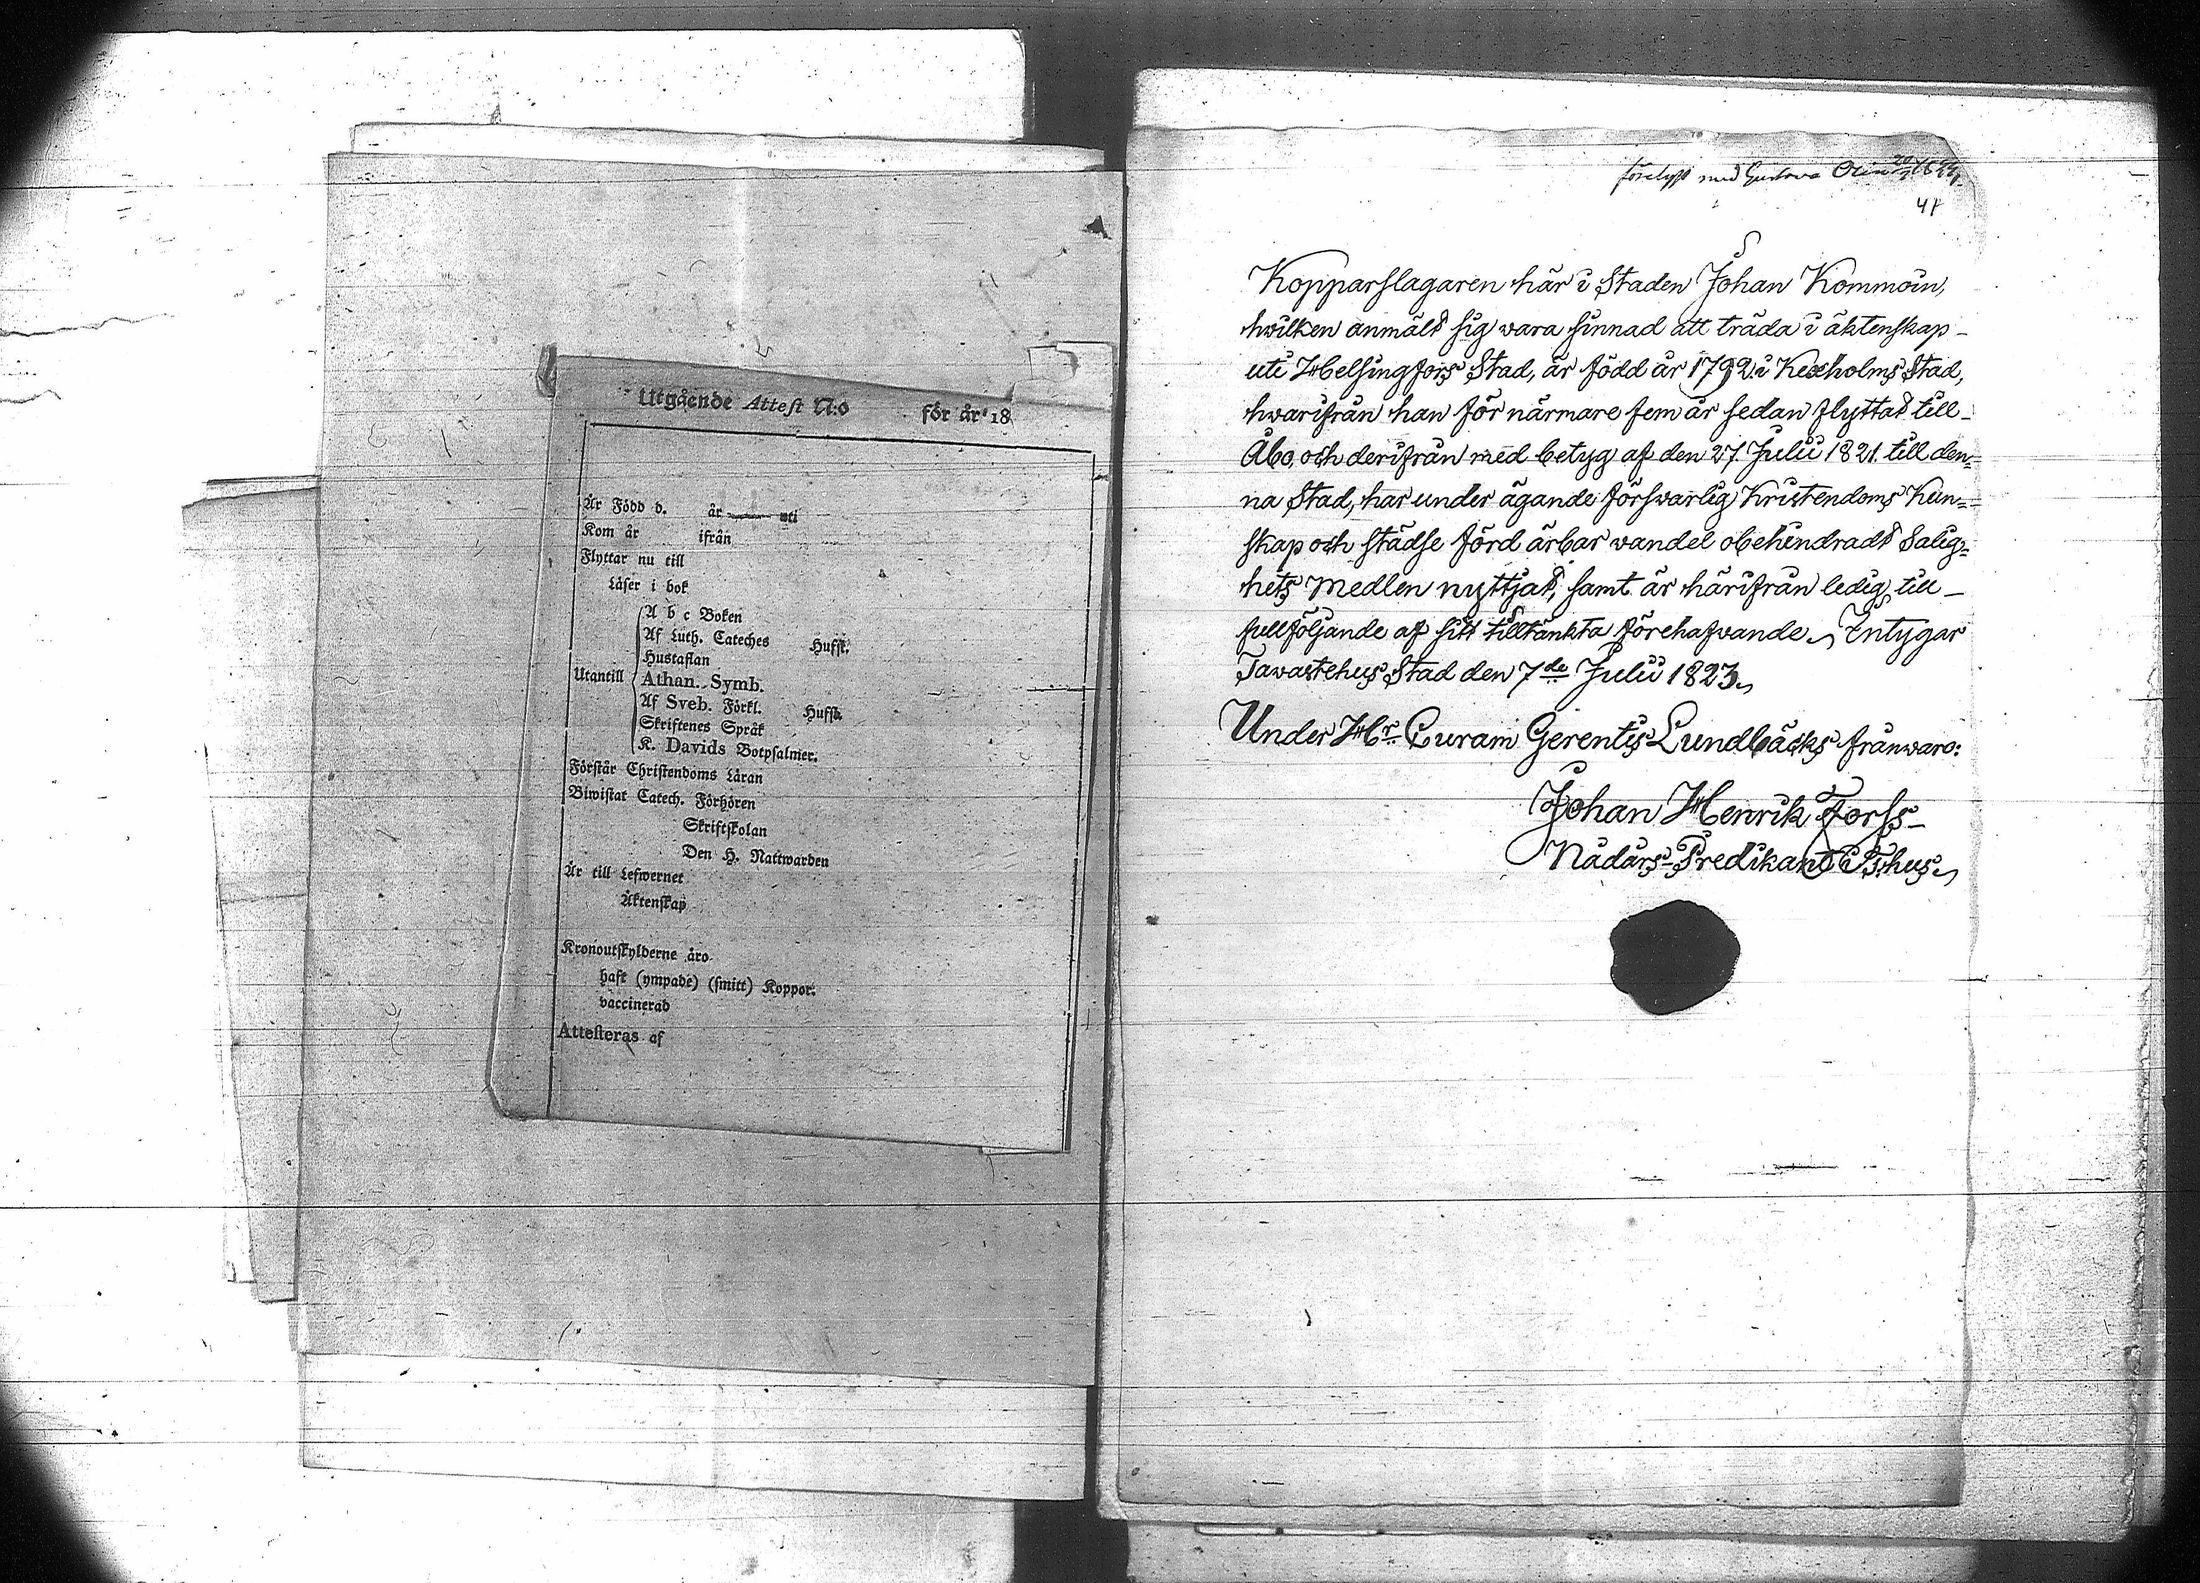 Utgående Attest N:o för år 18
Är Född d. år uti
Kom år ifrån
Flyttar nu till
Läser i bok
A b c Boken
Af Luth. Cateches Hufst.
Hustaflan
Utantill
Athan. Symb.
Af Sveb. Förkl. Hufst.
Skriftenes Språk
K. Davids Botpsalmer.
Förstår Christendoms Läran
Biwistat Catech. Förhören
Skriftskolan
Den H. Nattwarden
Är till Lefwernet
Äktenskap
Kronoutskylderne äro
haft (ympade) (smitt) Koppor.
vaccinerad
Attesteras af
förelyst med Gustava
41
Kopparslagaren här i Staden Johan Kommoin,
hwilken anmält sig wara sinnad att träda i äktenskap
uti Helsingfors Stad, är född år 1792 i Kexholms Stad,
hwarifrån han för närmare fem år sedan flyttat till
Åbo, och derifrån med betyg af den 27 Julii 1821. till den-
na Stad, har under ägande försvarlig Kristendoms Kun-
skap och städse förd ärbar wandel obehindradt Salig-
hets Medlen nyttjat, samt är härifrån ledig till
fullföljande af sitt tilltänkta förehafwande, Intygar
Tavastehus Stad den 7de Julii 1823.
Under Hr Curam Gerentis Lundbäcks frånwaro:
Johan Henrik Forss
Nådårs-Predikant i T:hus.